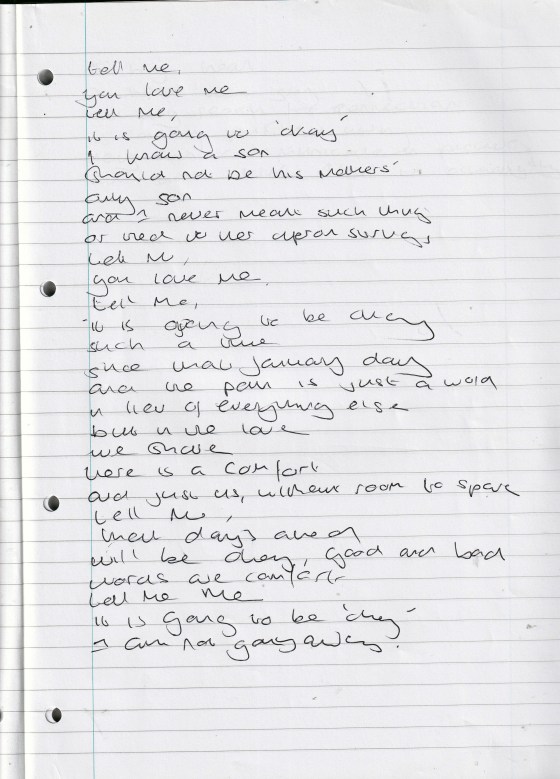 tell me,
you love me
tell me,
it is going to 'okay'
I know a son
should not be his mothers'
only son
and I never meant such thing
or tied to her apron strings
tell me,
you love me.
tell me,
it is going to be okay
such a time
since that january day
and the pain is just a word
in lieu of everything else
but in the love
we share
there is a comfort
and just us, without room to spare
tell me,
that days ahead
will be okay, good and bad
words are comfort
tell me me
it is going to be 'okay'
I am not going away.